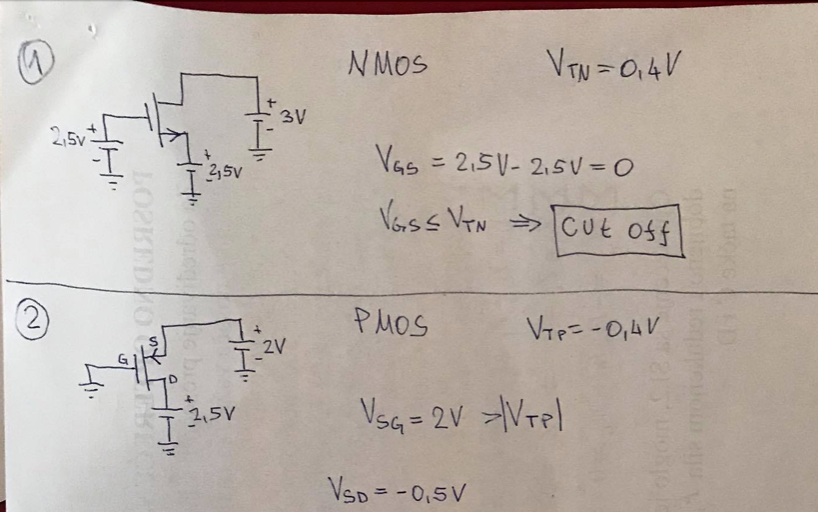 1
NMOS
V_TN = 0,4V
2,5V
+
-
+
-
2,5V
+
-
3V
V_GS = 2,5V - 2,5V = 0
V_GS ≤ V_TN ⇒ CUt Off
2
PMOS
V_TP = -0,4V
G
S
D
+
-
2V
+
-
2,5V
V_SG = 2V > |V_TP|
V_SD = -0,5V